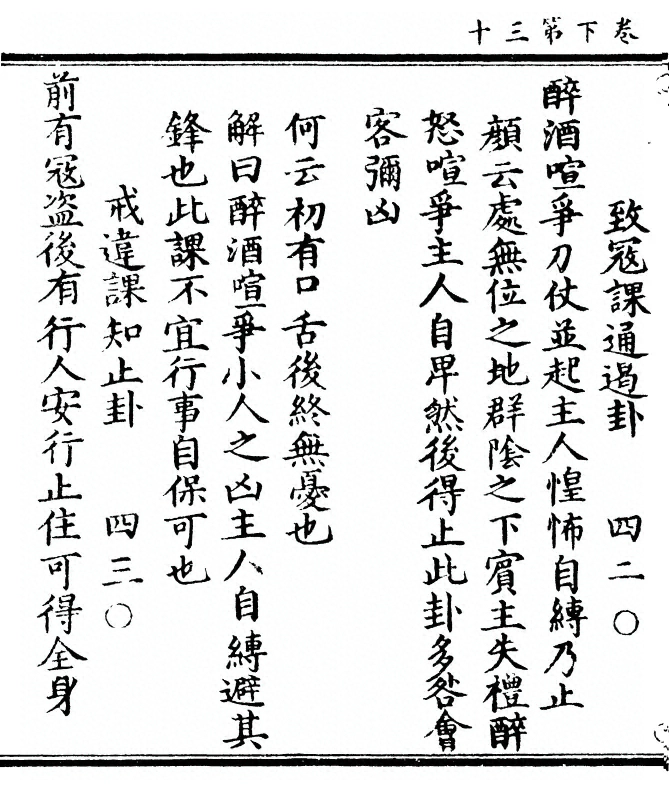 卷下第三十
致寇課通遏卦 四二〇
醉酒喧爭刀仗並起主人惶怖自縛乃止
顏云處無位之地群陰之下賓主失禮醉
怒喧爭主人自卑然後得止此卦多咎會
客彌凶
何云初有口舌後終無憂也
解曰醉酒喧爭小人之凶主人自縛避其
鋒也此課不宜行事自保可也
戒違課知止卦 四三〇
前有寇盗後有行人安行止住可得全身